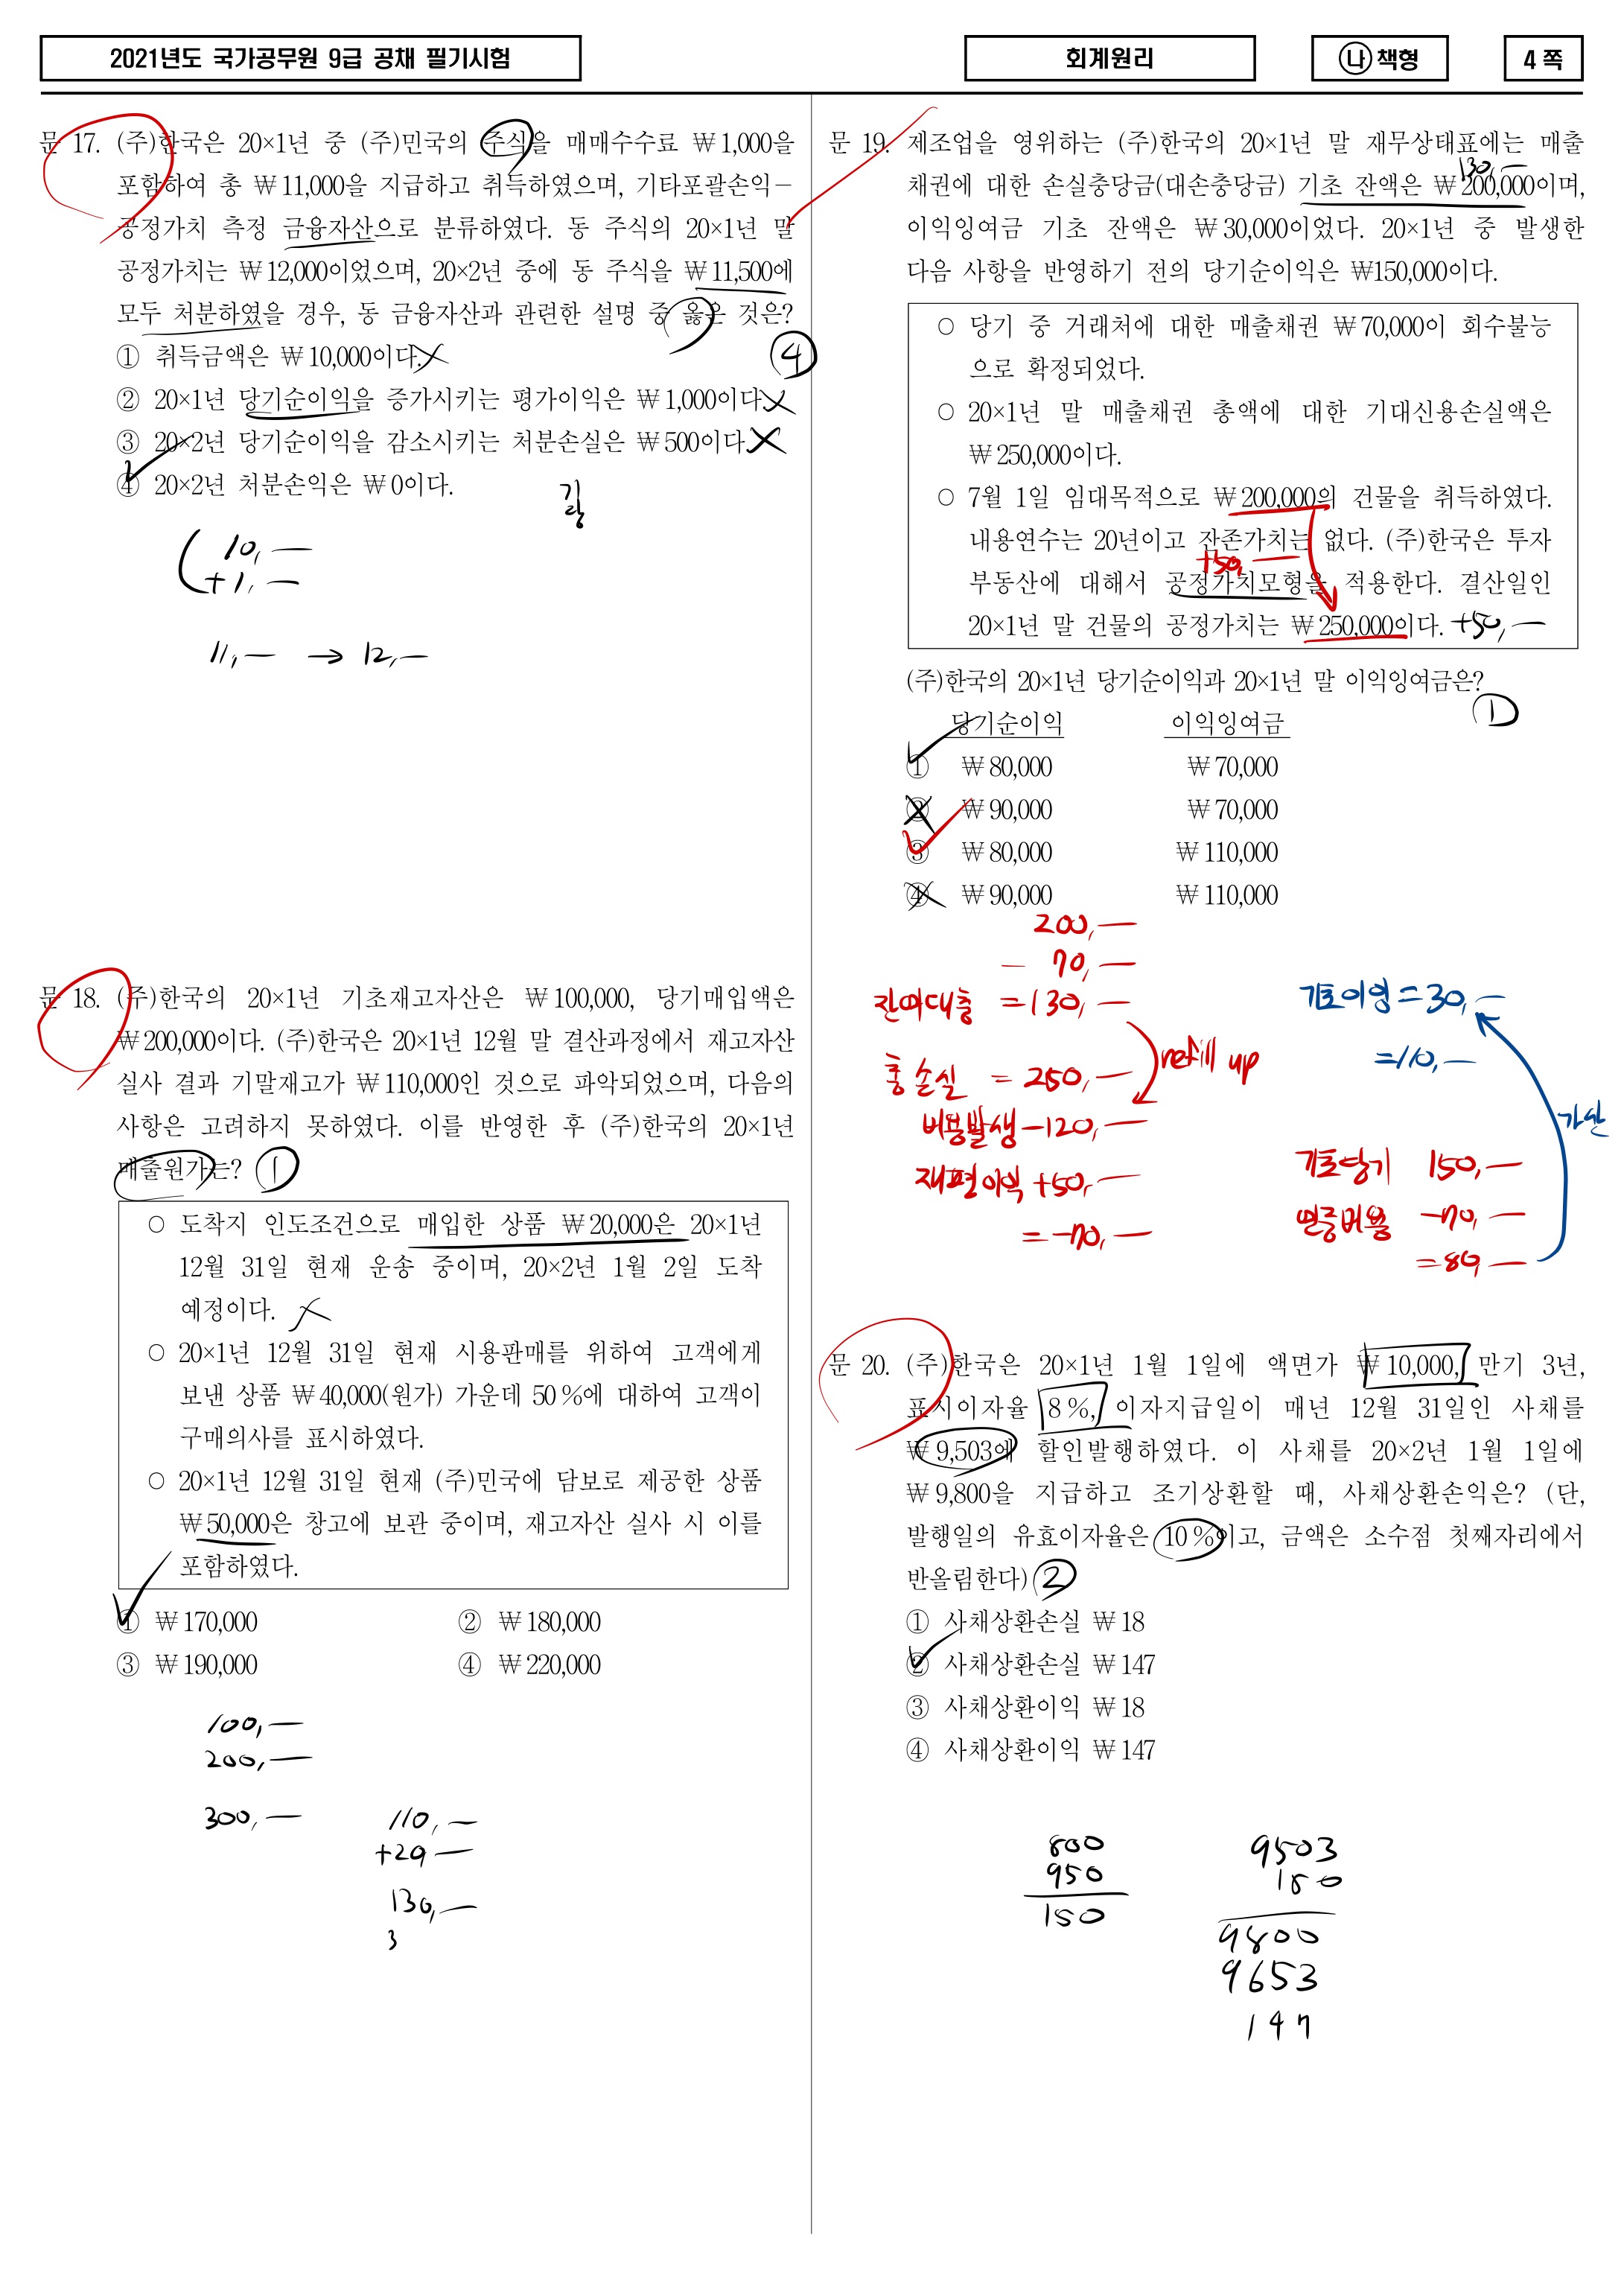 2021년도 국가공무원 9급 공채 필기시험
회계원리
㉯ 책형
4 쪽
문 17. (주)한국은 20×1년 중 (주)민국의 주식을 매매수수료 ₩1,000을
포함하여 총 ₩11,000을 지급하고 취득하였으며, 기타포괄손익－
공정가치 측정 금융자산으로 분류하였다. 동 주식의 20×1년 말
공정가치는 ₩12,000이었으며, 20×2년 중에 동 주식을 ₩11,500에
모두 처분하였을 경우, 동 금융자산과 관련한 설명 중 옳은 것은?
④
① 취득금액은 ₩10,000이다.
② 20×1년 당기순이익을 증가시키는 평가이익은 ₩1,000이다.
③ 20×2년 당기순이익을 감소시키는 처분손실은 ₩500이다.
④ 20×2년 처분손익은 ₩0이다.
10,—
+1,—
11,— → 12,—
문 18. (주)한국의 20×1년 기초재고자산은 ₩100,000, 당기매입액은
₩200,000이다. (주)한국은 20×1년 12월 말 결산과정에서 재고자산
실사 결과 기말재고가 ₩110,000인 것으로 파악되었으며, 다음의
사항은 고려하지 못하였다. 이를 반영한 후 (주)한국의 20×1년
매출원가는? ①
○ 도착지 인도조건으로 매입한 상품 ₩20,000은 20×1년
12월 31일 현재 운송 중이며, 20×2년 1월 2일 도착
예정이다.
○ 20×1년 12월 31일 현재 시용판매를 위하여 고객에게
보낸 상품 ₩40,000(원가) 가운데 50%에 대하여 고객이
구매의사를 표시하였다.
○ 20×1년 12월 31일 현재 (주)민국에 담보로 제공한 상품
₩50,000은 창고에 보관 중이며, 재고자산 실사 시 이를
포함하였다.
① ₩170,000 ② ₩180,000
③ ₩190,000 ④ ₩220,000
100,—
200,—
300,—
110,—
+20,—
130,—
3
문 19. 제조업을 영위하는 (주)한국의 20×1년 말 재무상태표에는 매출
130,—
채권에 대한 손실충당금(대손충당금) 기초 잔액은 ₩200,000이며,
이익잉여금 기초 잔액은 ₩30,000이었다. 20×1년 중 발생한
다음 사항을 반영하기 전의 당기순이익은 ₩150,000이다.
○ 당기 중 거래처에 대한 매출채권 ₩70,000이 회수불능
으로 확정되었다.
○ 20×1년 말 매출채권 총액에 대한 기대신용손실액은
₩250,000이다.
○ 7월 1일 임대목적으로 ₩200,000의 건물을 취득하였다.
내용연수는 20년이고 잔존가치는 없다. (주)한국은 투자
+50,—
부동산에 대해서 공정가치모형을 적용한다. 결산일인
20×1년 말 건물의 공정가치는 ₩250,000이다. +50,—
(주)한국의 20×1년 당기순이익과 20×1년 말 이익잉여금은?
①
당기순이익 이익잉여금
① ₩80,000 ₩70,000
② ₩90,000 ₩70,000
③ ₩80,000 ₩110,000
④ ₩90,000 ₩110,000
200,—
- 70,—
잔여대충 =130,—
총 손실 = 250,—
refill up
비용발생 -120,—
재평이익 +50,—
= -70,—
기초이잉 = 30,—
=110,—
가산
기초당기 150,—
-70,—
=80,—
문 20. (주)한국은 20×1년 1월 1일에 액면가 ₩10,000, 만기 3년,
표시이자율 8%, 이자지급일이 매년 12월 31일인 사채를
₩9,503에 할인발행하였다. 이 사채를 20×2년 1월 1일에
₩9,800을 지급하고 조기상환할 때, 사채상환손익은? (단,
발행일의 유효이자율은 10%이고, 금액은 소수점 첫째자리에서
반올림한다) ②
① 사채상환손실 ₩18
② 사채상환손실 ₩147
③ 사채상환이익 ₩18
④ 사채상환이익 ₩147
800
950
150
9503
150
9800
9653
147